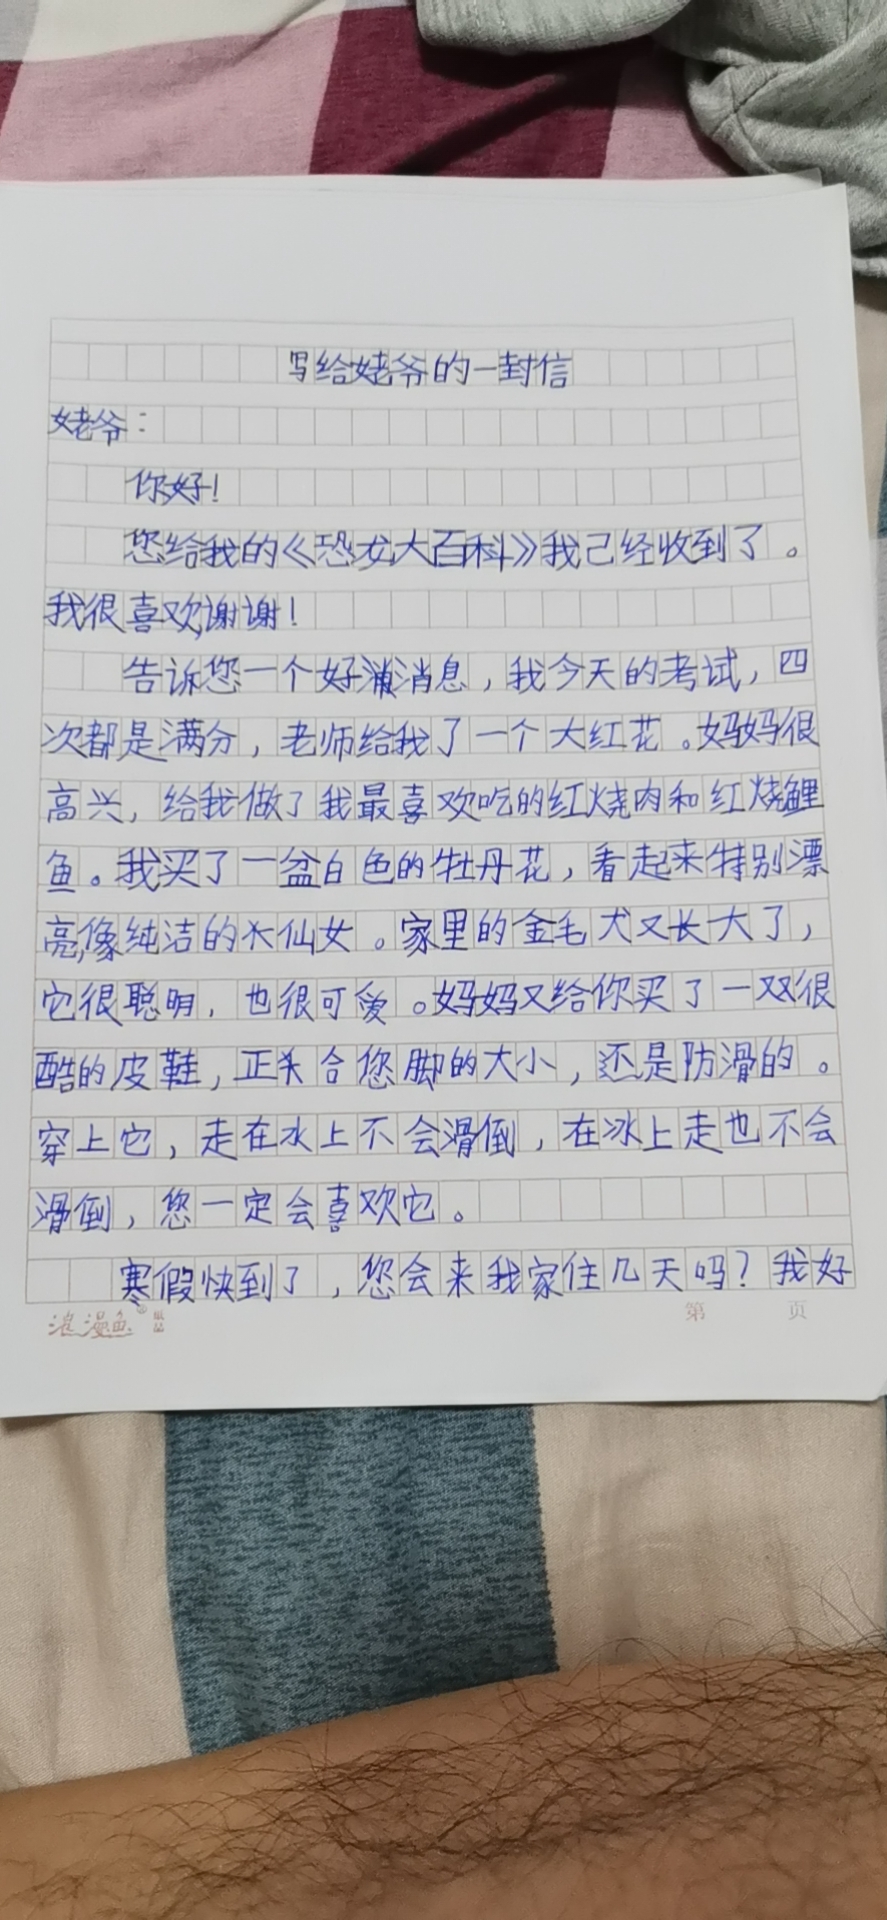 写给姥爷的一封信
姥爷：
你好！
您给我的《恐龙大百科》我己经收到了。
我很喜欢,谢谢！
告诉您一个好消息，我今天的考试，四
次都是满分，老师给我了一个大红花。妈妈很
高兴，给我做了我最喜欢吃的红烧肉和红烧鲤
鱼。我买了一盆白色的牡丹花，看起来特别漂
亮,像纯洁的水仙女。家里的金毛犬又长大了，
它很聪明，也很可爱。妈妈又给你买了一双很
酷的皮鞋，正合您脚的大小，还是防滑的。
穿上它，走在水上不会滑倒，在冰上走也不会
滑倒，您一定会喜欢它。
寒假快到了，您会来我家住几天吗？我好
浪漫鱼® 纸品
第 页